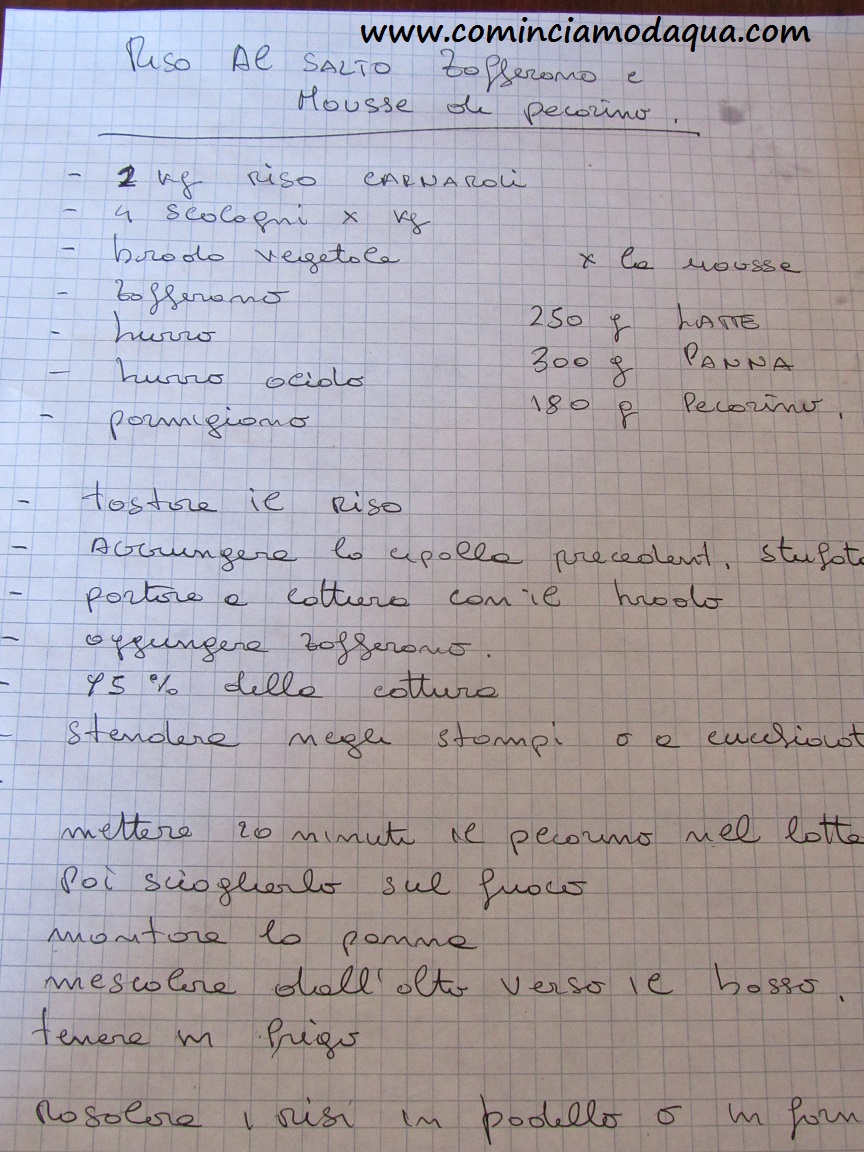 www.cominciamodaqua.com
Riso Al SALTO Zafferano e
Mousse di pecorino.
- 2 kg riso CARNAROli
- 4 scalogni x kg
- brodo vegetale
- Zafferano
- burro
- burro acido
- parmigiano
x la mousse
250 g LATTE
300 g PANNA
180 g Pecorino.
- tostare il Riso
- Aggiungere la cipolla precedent. stufata
- portare a cottura con il brodo
- aggiungere zafferano.
- 95% della cottura
- stendere negli stampi o a
mettere 20 minuti il pecorino nel latte
Poi scioglierlo sul fuoco
montare la panna
mescolare dall'alto verso il basso.
tenere in frigo
Rosolare i risi in padella o in forn